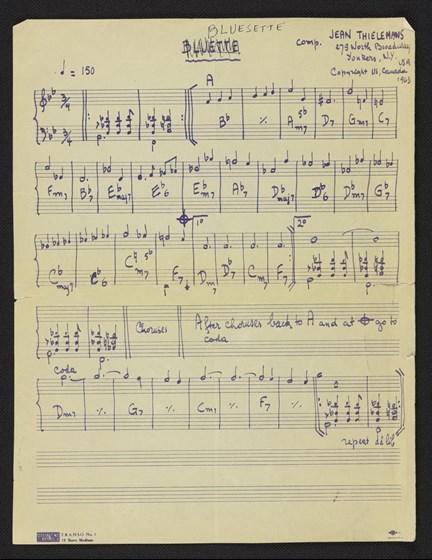 BLUESETTE
BLUETTE
comp. JEAN THIELEMANS
273 North Broadway
Yonkers, N.Y.
USA
Copyright US, Canada
1963
♩ = 150
A
3/4 Bb ٪ Am7 5b D7 Gm7 C7
3/4
Fm7 Bb7 Ebmaj7 Eb6 Ebm7 Ab7 Dbmaj7 Db6 Dbm7 Gb7
1o 2o
Cbmaj7 Cb6 Cm7 5b F7 Dm7 Db7 Cm7 F7
Choruses After choruses back to A and at go to
coda
coda
Dm7 ٪ G7 ٪ Cm7 ٪ F7 ٪
repeat ad lib
PASSANTINO